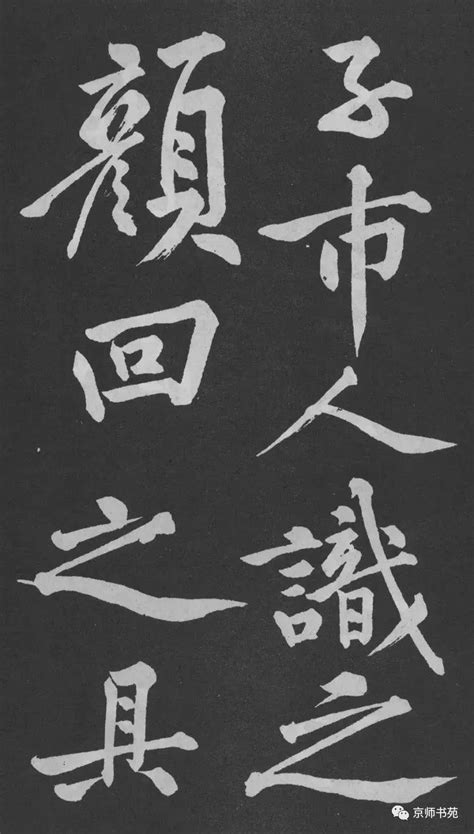 子市人識之
顏回之具
京师书苑